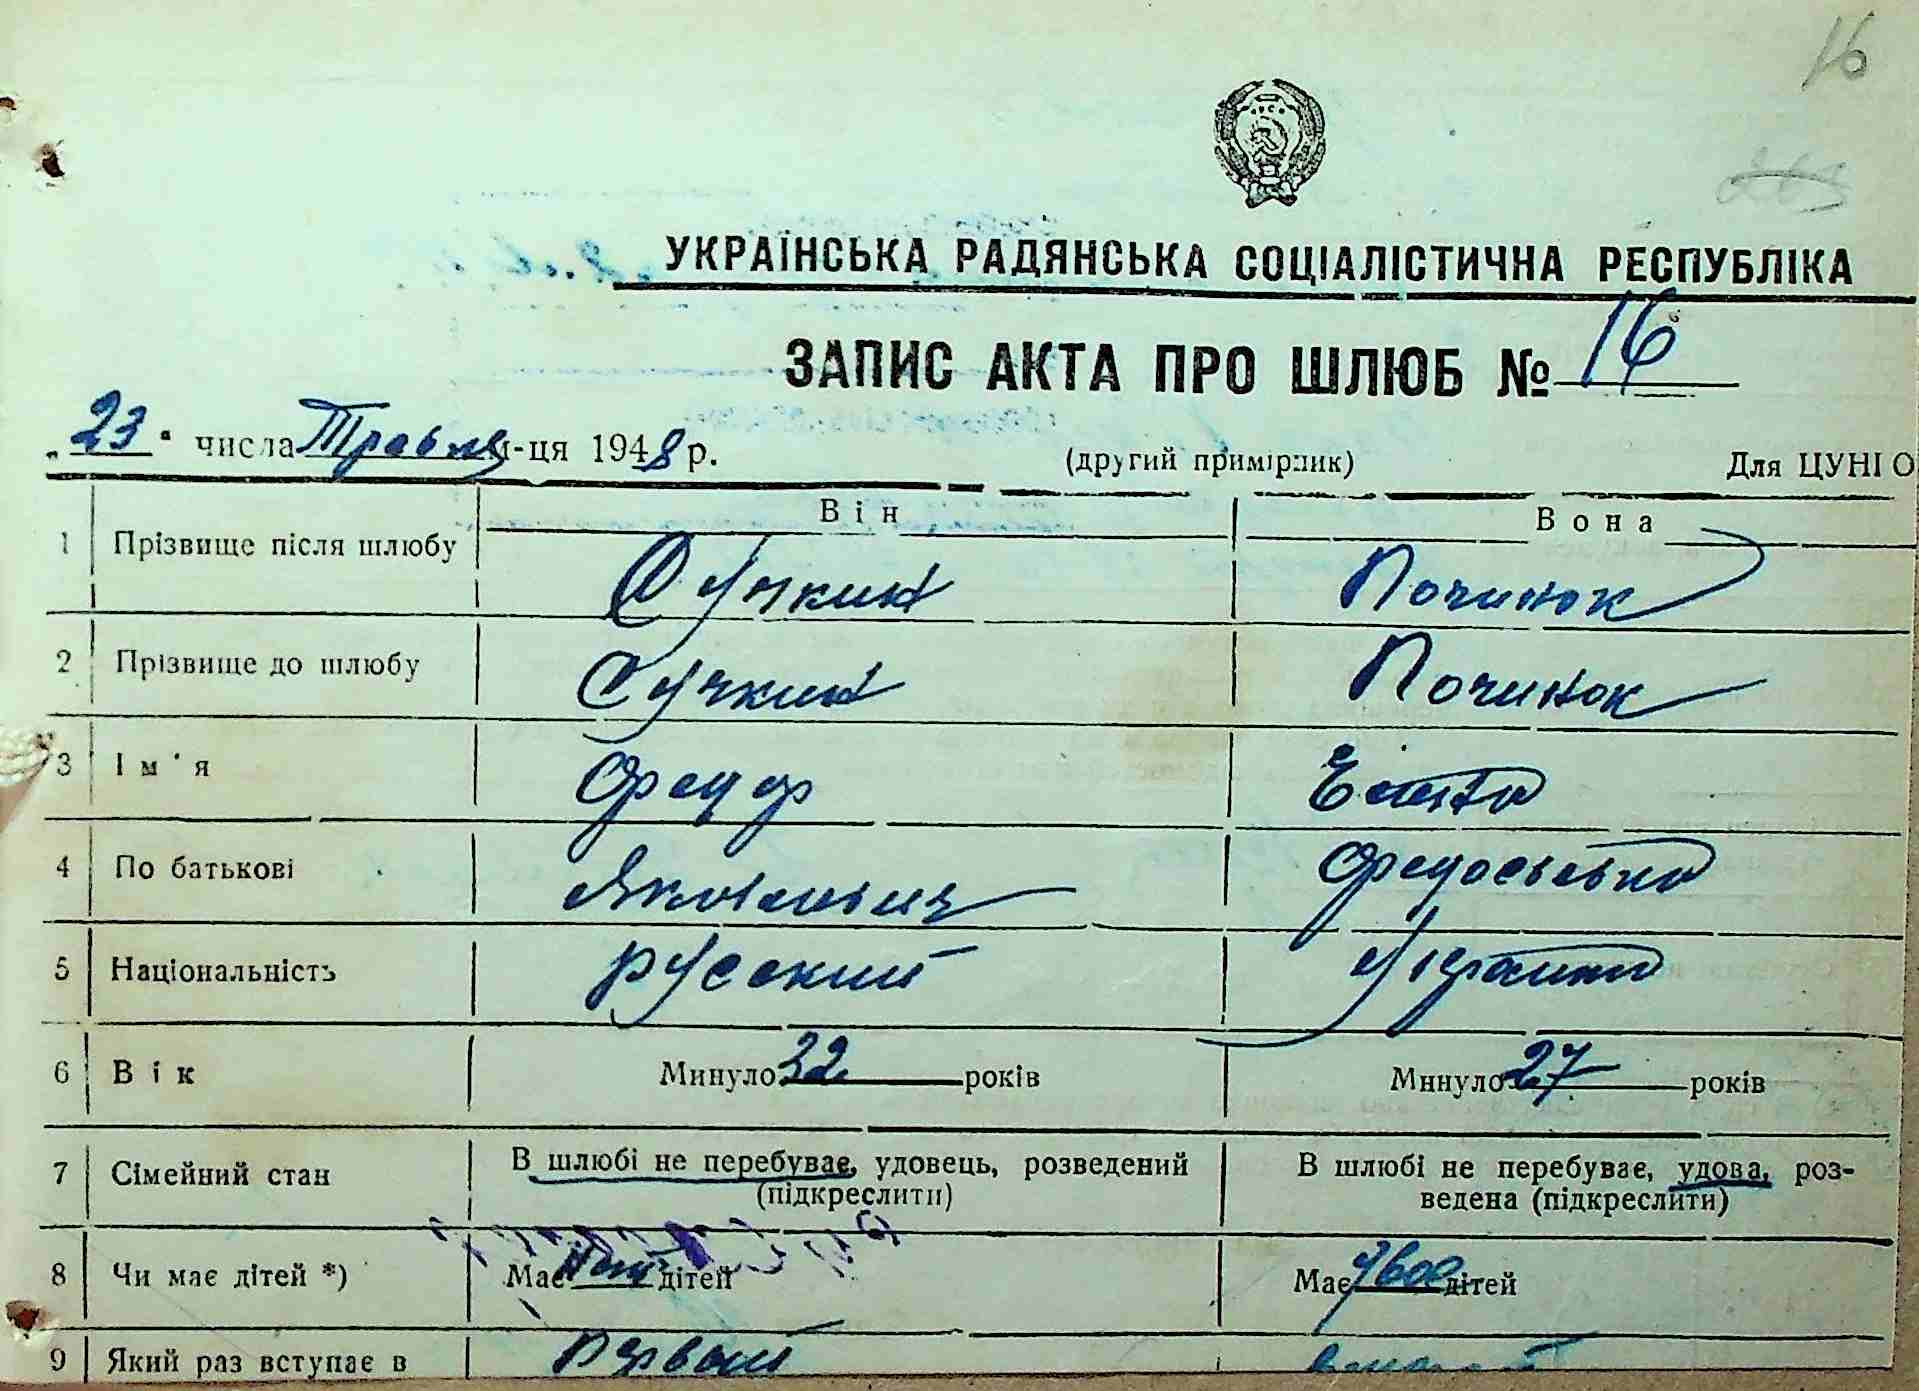 16
УКРАЇНСЬКА РАДЯНСЬКА СОЦІАЛІСТИЧНА РЕСПУБЛІКА
ЗАПИС АКТА ПРО ШЛЮБ № 16
„23“ числа Травня м-ця 1948 р.
(другий примірник) Для ЦУНІО
Він Вона
1 Прізвище після шлюбу Сучкин Починок
2 Прізвище до шлюбу Сучкин Починок
3 Ім'я Федор
4 По батькові Яковлевич Федосьевна
5 Національність русский Украинка
6 Вік Минуло 32 років Минуло 27 років
7 Сімейний стан В шлюбі не перебуває, удовець, розведений (підкреслити) В шлюбі не перебуває, удова, роз-
ведена (підкреслити)
8 Чи має дітей *) Має дітей Має двое дітей
9 Який раз вступає в Первый